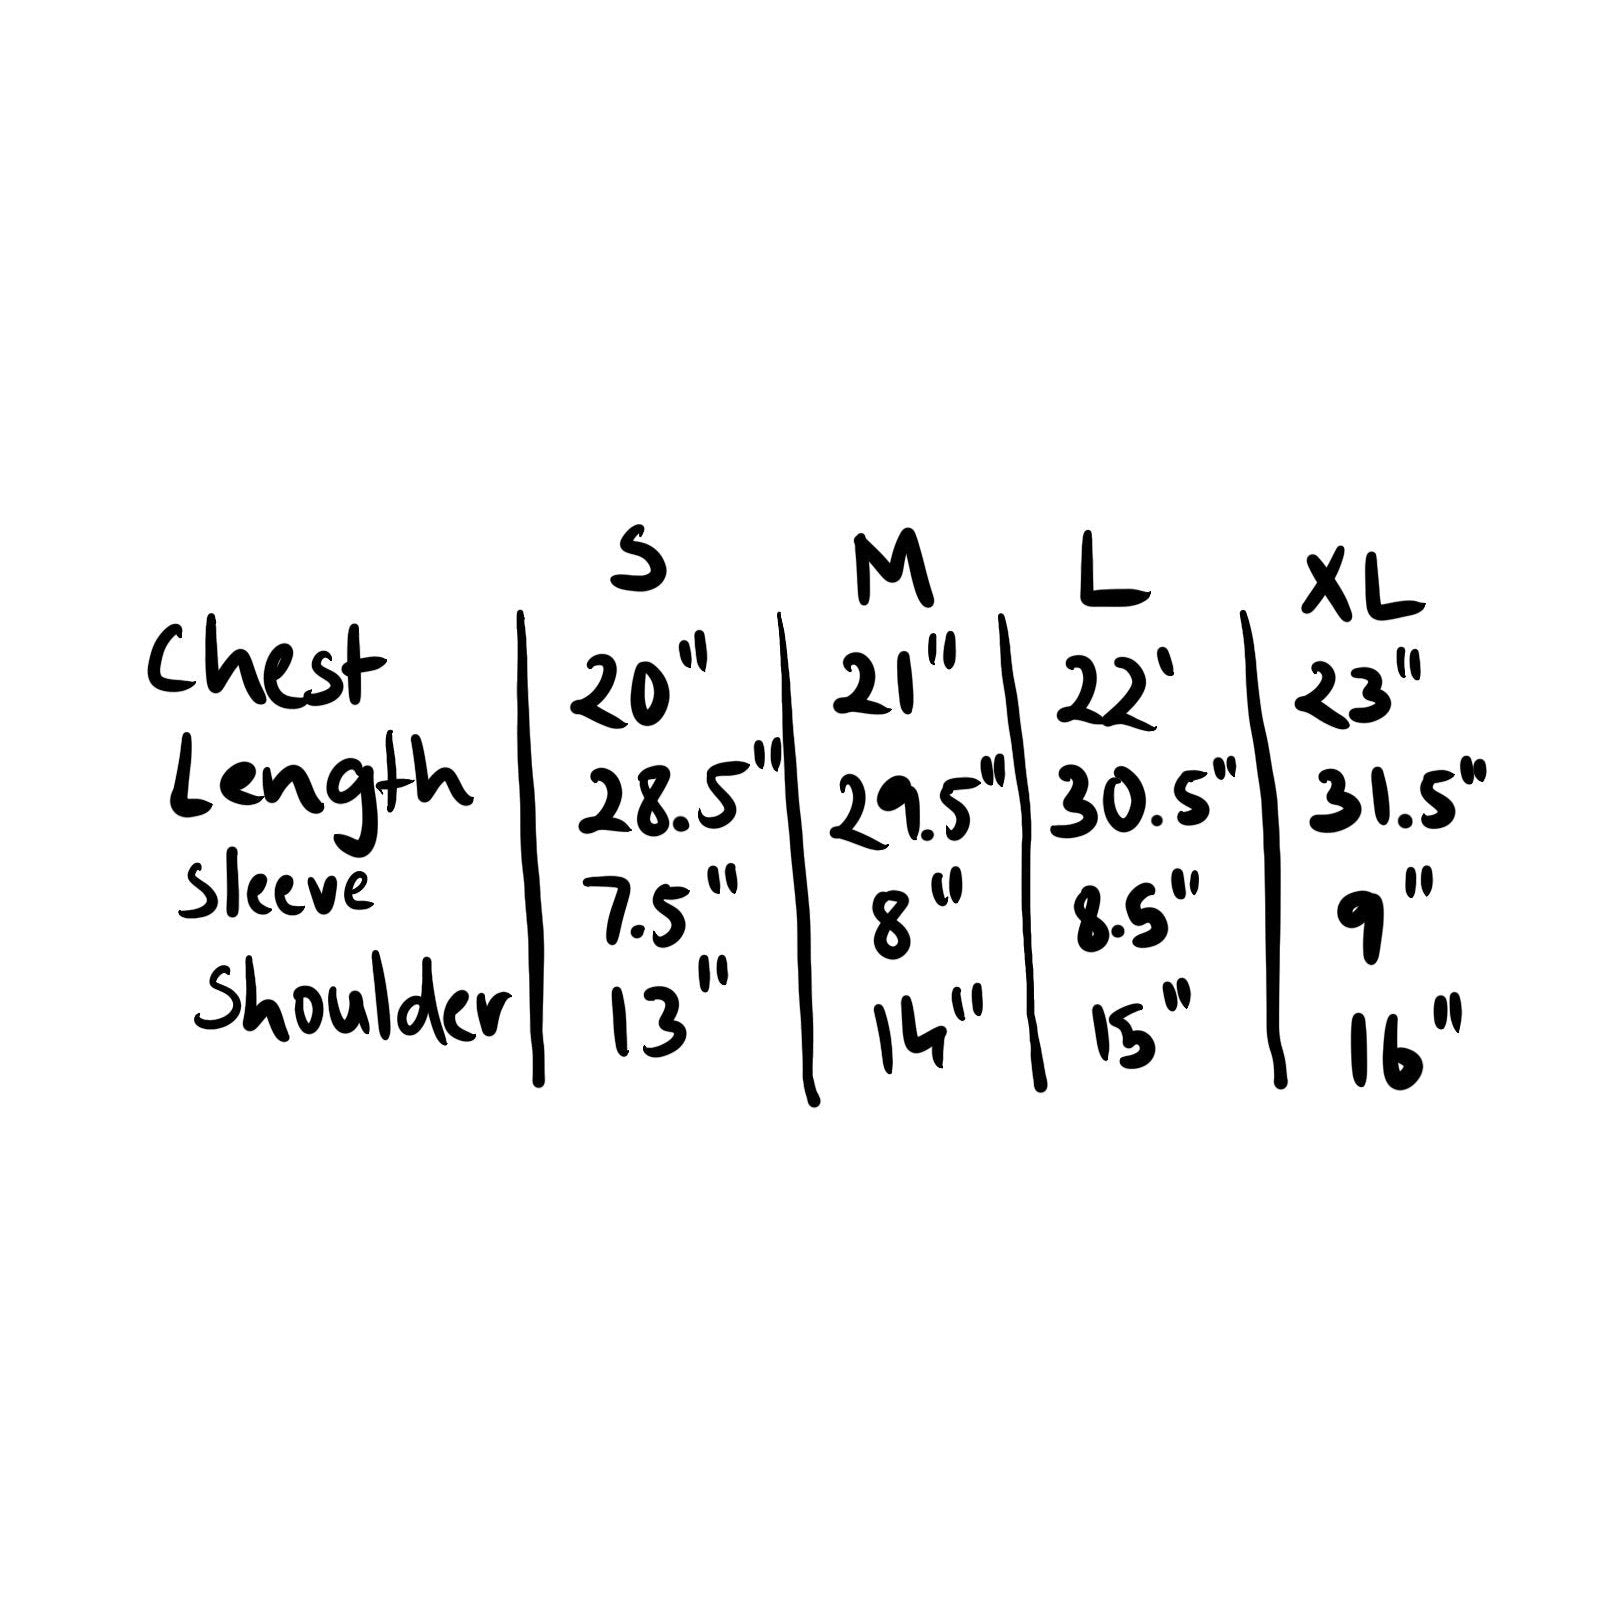 S M L XL
Chest 20" 21" 22' 23"
Length 28.5" 29.5" 30.5" 31.5"
Sleeve 7.5" 8" 8.5" 9"
Shoulder 13" 14" 15" 16"